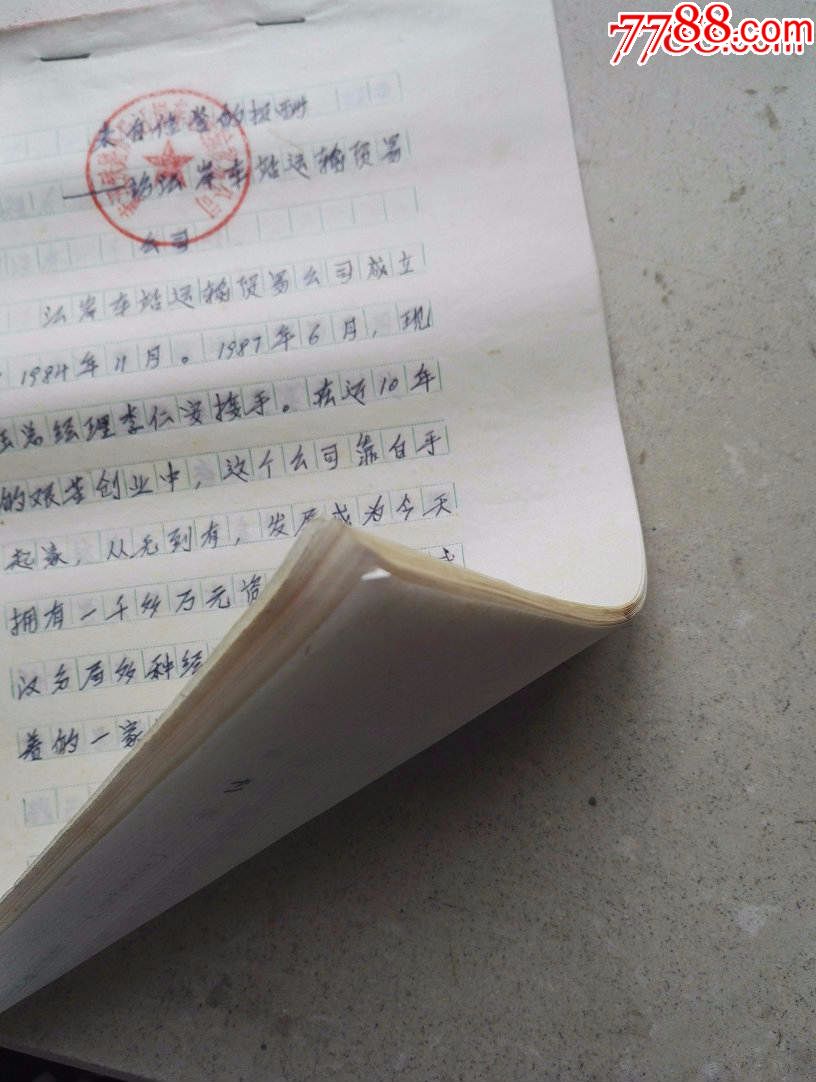 7788.com
来自信誉的报酬
——记江岸车站运输贸易
公司
江岸车站运输贸易公司成立
1984年11月。1987年6月,现
总经理李仁安接手。在近10年
的艰苦创业中,这个公司靠白手
起家,从无到有,发展成为今天
拥有一千多万元资
汉分局多种经
着的一家